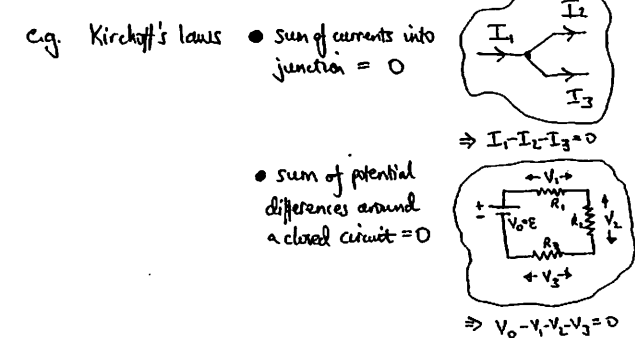 e.g. Kirchoff's laws • sum of currents into
junction = 0
I₁
I₂
I₃
⇒ I₁-I₂-I₃=0
• sum of potential
differences around
a closed circuit = 0
V₁
R₁
+
-
V₀=ε
R₂
V₂
R₃
V₃
⇒ V₀-V₁-V₂-V₃=0